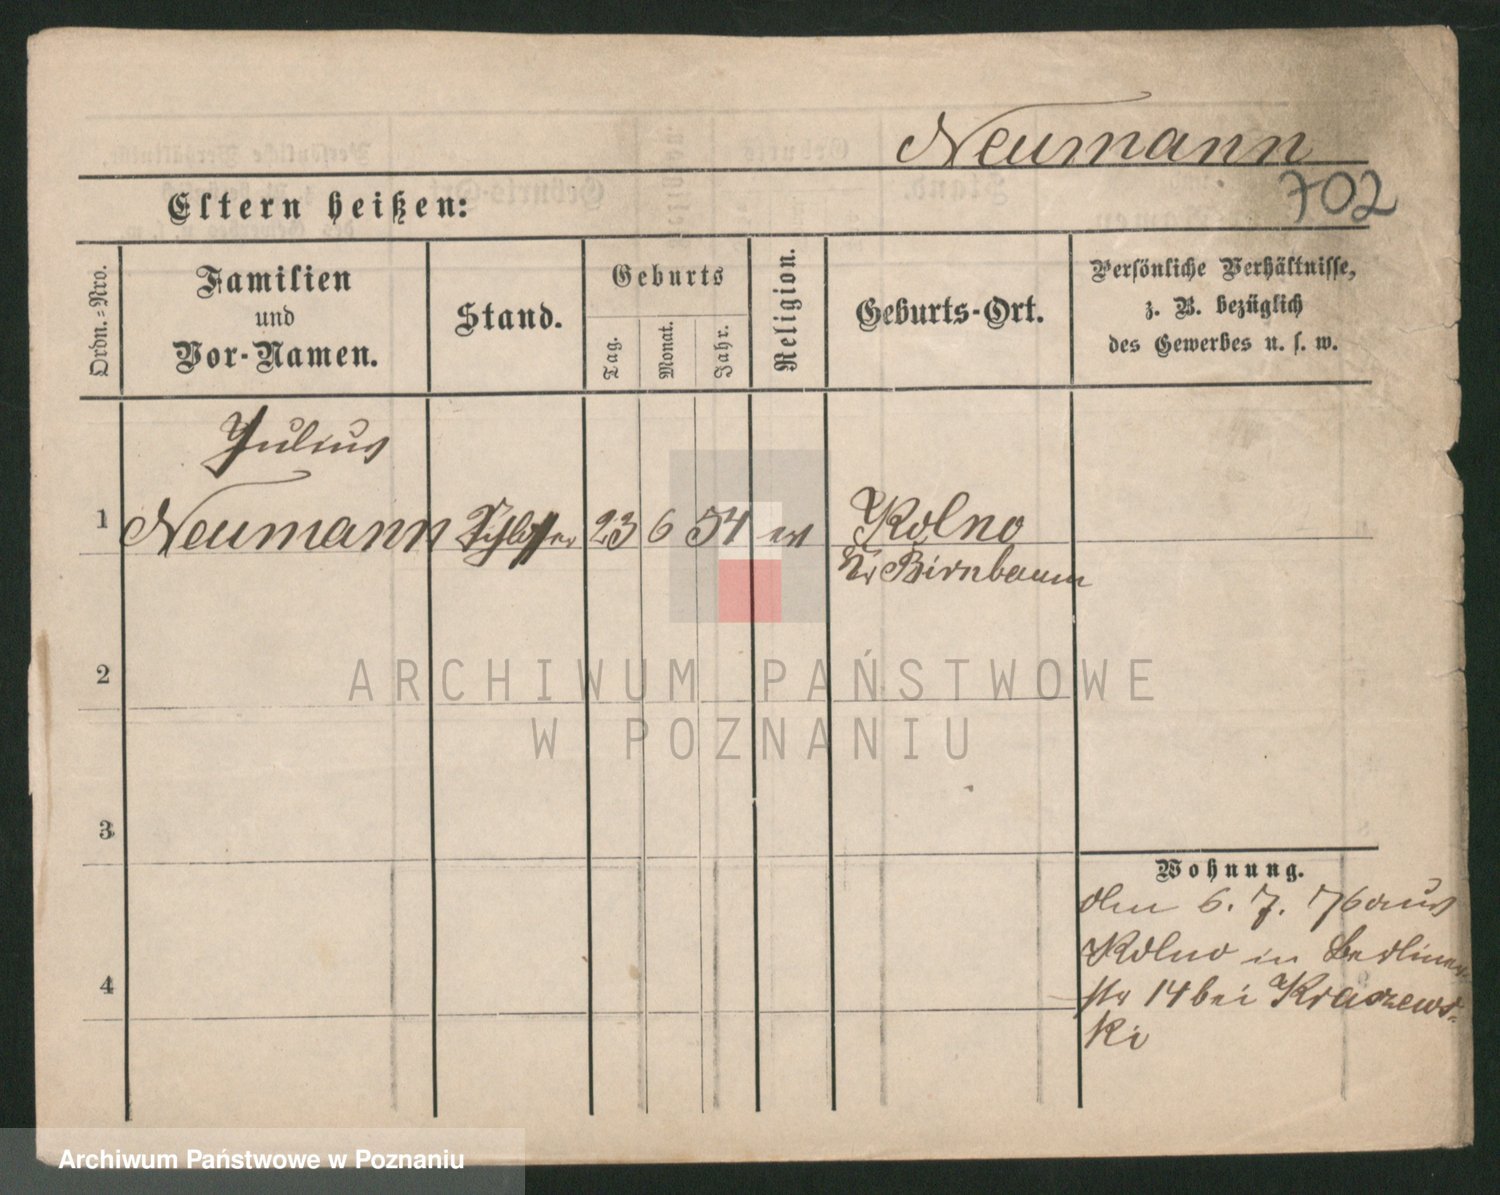 Neumann
702
Eltern heißen:
Ordn.-Nro.
Familien
und
Vor-Namen.
Stand.
Geburts
Tag.
Monat.
Jahr.
Religion.
Geburts-Ort.
Persönliche Verhältnisse,
z. B. bezüglich
des Gewerbes u. s. w.
Julius
1 Neumann Schlosser 23 6 54 ev Kolno
Kr Birnbaum
2
3
4
Wohnung.
den 6. 7. 76 aus
Kolno in Berliner-
str 14 bei Kraszews-
ki
ARCHIWUM PAŃSTWOWE
W POZNANIU
Archiwum Państwowe w Poznaniu